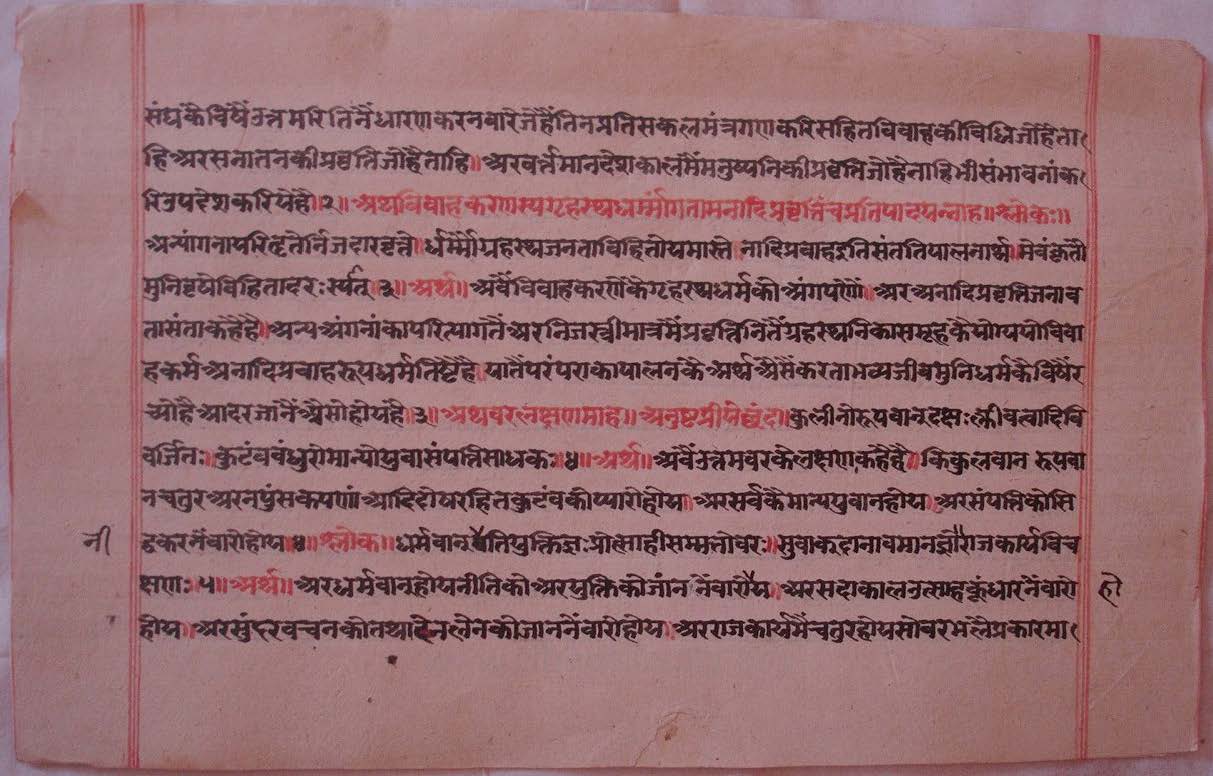 संघकैविषैंउत्तमरितिनैंधारणकरनवारेजेहैंतिनप्रतिसकलमंत्रगणकरिसहितविवाहकीविधिजोहैता
हिअरसनातनकीप्रवृत्तिजोहैताहि॥अरवर्त्तमानदेशकालमैंमनुष्यनिकीप्रवृत्तिजोहैताहिभीसंभावनांक
रिउपदेशकरियेहै॥२॥अथविवाहकरणस्यगृहस्थधर्म्मांगतामनादिप्रवृत्तिंचप्रतिपादयन्नाह॥श्लोकः॥
अन्यांगनापरिवृतेर्निजदारवृत्ते॥र्धर्म्मोग्रहस्थजनताविहितोयमास्ते॥नादिप्रवाहइतिसंततिपालनार्थ॥मेवंकृतौ
मुनिवृषेविहितादरःस्यात्॥३॥अर्थ॥अंबैंविवाहकरणेंकैगृहस्थधर्मकोअंगपणेंं॥अरअनादिप्रवृत्तिजनाव
तासंताकहैहै॥अन्यअंगनांकापरित्यागतैंअरनिजस्त्रीमात्रमैंप्रवृत्तिनितैंग्रहस्थनिकासमूहकैयोग्ययोविवा
हकर्मअनादिप्रवाहरूपधर्मतिष्टैहै॥यातैंपरंपराकापालनकैअर्थअैसैंकरताभव्यजीवमुनिधर्मकैविषैंर
च्योहैआदरजांनैंअैसोहोयहै॥३॥अथवरलक्षणमाह॥अनुष्टप् छंदः॥कुलीनोरूपवान्दक्षःक्लीवत्वादिवि
वर्जितः॥कुटंबबंधुरोमान्योयुवासंपत्तिसाधकः॥४॥अर्थ॥अंबैंउत्तमवरकेलक्षणकहैहै॥किकुलवान रूपवा
नचतुरअरनपुंसकपणां आदिदोषरहितकुटंबकोप्यारोहोय॥अरसर्वकैमान्ययुवानहोय॥अरसंपत्तिकोसि
द्धकरनैंवारोहोय॥४॥श्लोक॥धर्मवान्न्नतियुक्तिज्ञःप्रोत्साहीसम्मतोवरः॥सुवाक्दानावमानज्ञोराजकार्यविच
नी
क्षणः॥५॥अर्थ॥अरधर्मवानहोयनीतिकोअरयुक्तिकोजांननैंवारोय॥अरसदाकालउत्साहकूंधारनैंवारो
हो
होय॥अरसुंदरवचनकोतथादेनलेनकोजाननैंवारोहोय॥अरराजकार्यमैंचतुरहोयसोवरभलैप्रकारमा